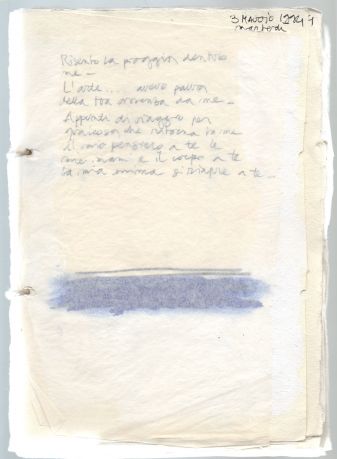 3 MAGGIO 1994
martedì
Risento la pioggia dentro
me –
L'arte... avevo paura
della tua assenza da me –
Appunti di viaggio per
che ritorna in me
il mio pensiero a te le
mie mani e il corpo a te
la mia anima si riapre a te...